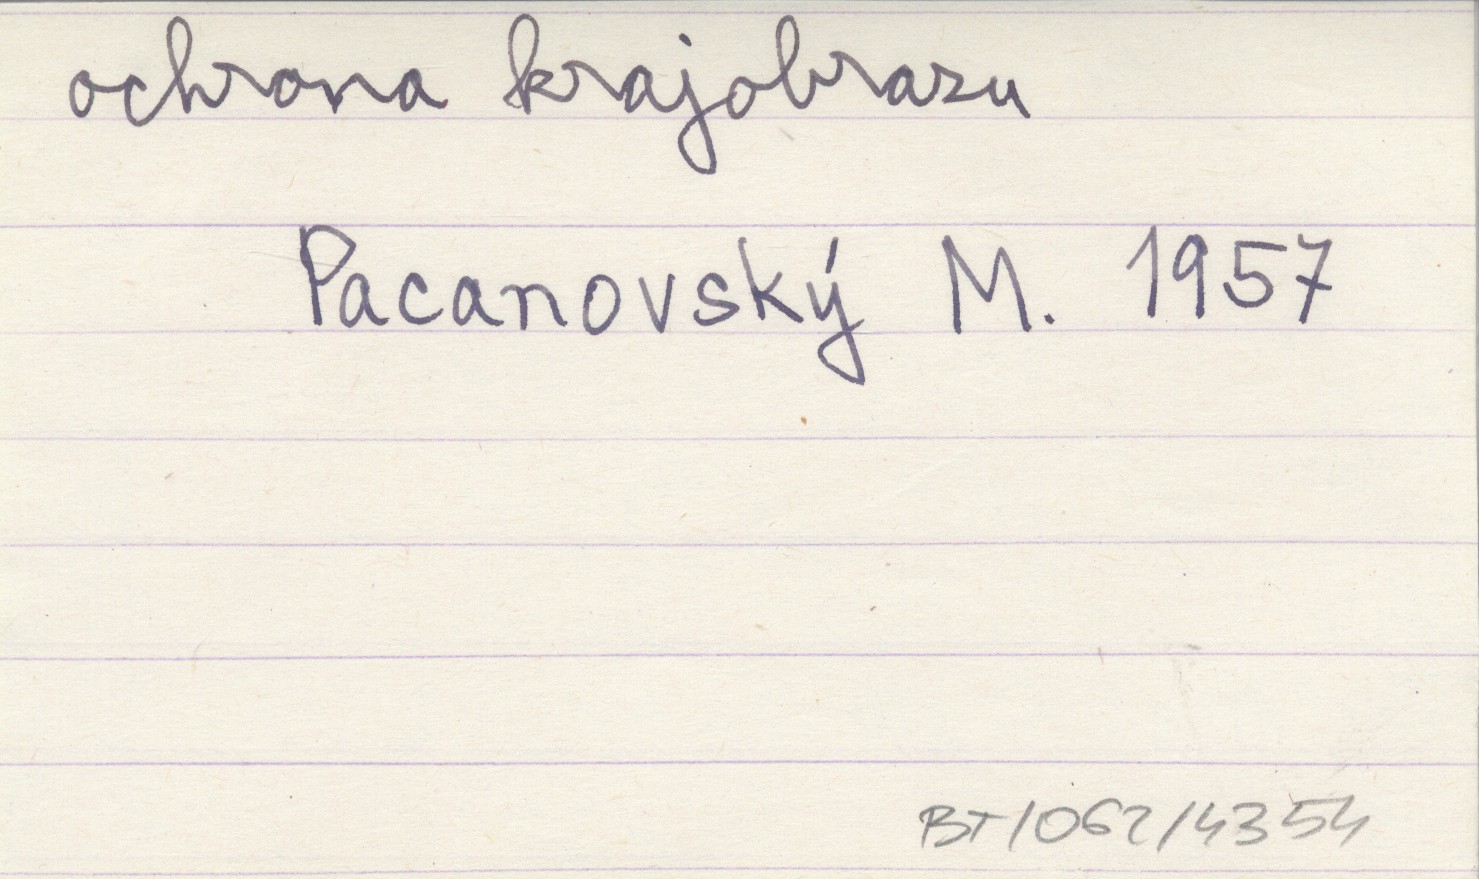 ochrona krajobrazu
Pacanovský M. 1957
BT/062/4354